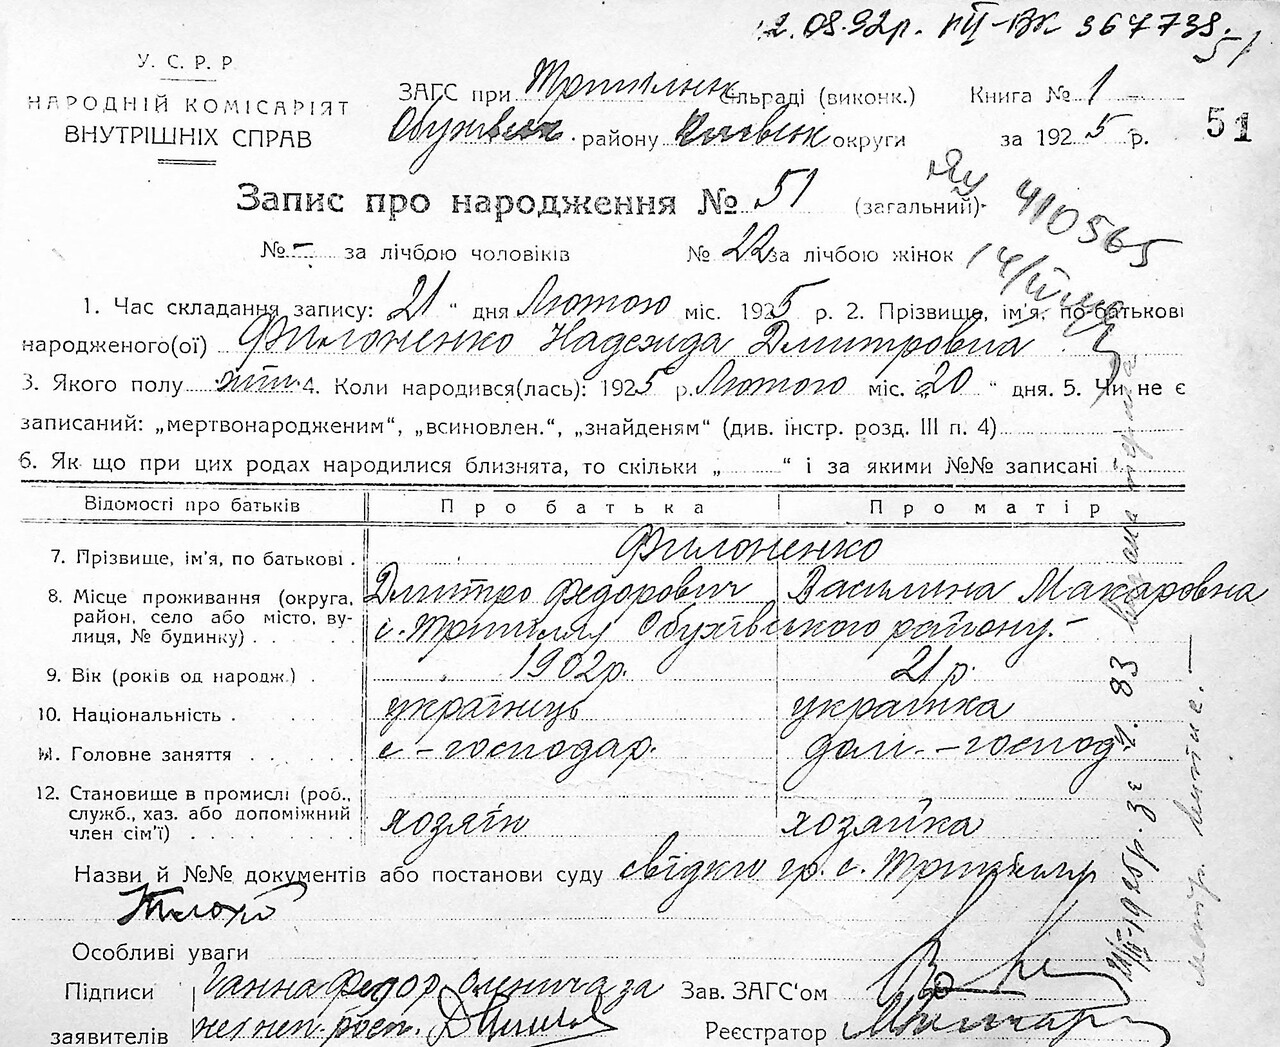 12.08.92р. III-ВК 367738.
51
У. С. Р. Р
НАРОДНІЙ КОМІСАРІЯТ
ВНУТРІШНІХ СПРАВ
ЗАГС при Трипільск Сільраді (виконк.) Книга № 1
Обухівськ. району Київськ округи за 1925 р.
51
Запис про народження № 51 (загальний)
410565
№ – за лічбою чоловіків № 22 за лічбою жінок
1. Час складання запису: 21 " дня Лютого міс. 1925 р. 2. Прізвище, ім'я, по-батькові
народженого(ої) Филоненко Надежда Дмитровна
3. Якого полу жін. 4. Коли народився(лась): 1925 р. Лютого міс. „20 " дня. 5. Чи не є
записаний: „мертвонародженим", „всиновлен.", „знайденям" (див. інстр. розд. III п. 4)
6. Як що при цих родах народилися близнята, то скільки „ " і за якими №№ записані
Відомості про батьків Про батька Про матір
7. Прізвище, ім'я, по батькові . Филоненко
Дмитро Федорович Василина Макаровна
8. Місце проживання (округа, район, село або місто, вулиця, № будинку) . . . . с. Трипілля Обухівського району. –
9. Вік (років од народж.) . 1902р. 21 р.
10. Національність . українець українка
11. Головне заняття . . . . . . с – господар. дом. – господ
12. Становище в промислі (роб., служб., хаз. або допоміжний член сім'ї) . . . . . . хозяїн хозяйка
Назви й №№ документів або постанови суду свідки гр. с. Трипілля
Особливі уваги
Підписи Ганна Федор за
заявителів неї неп. росп.
Зав. ЗАГС'ом
Реєстратор